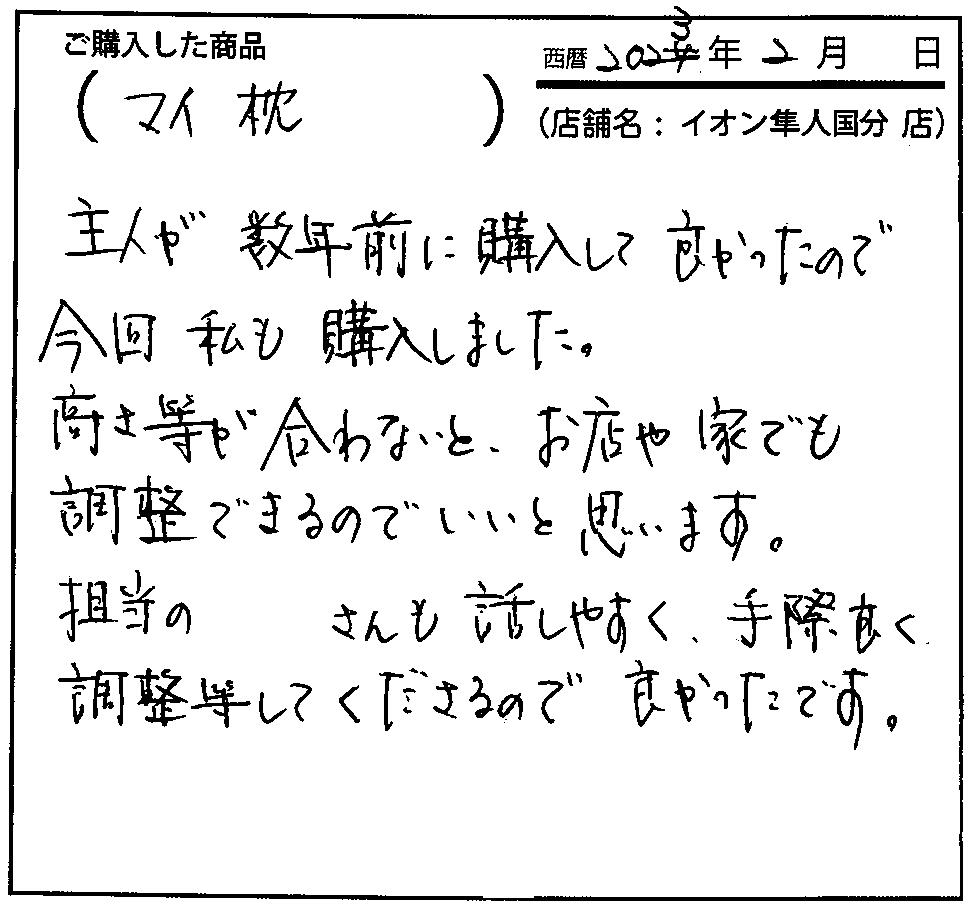 ご購入した商品
(マイ枕)
西暦 2023年 2月 日
(店舗名：イオン隼人国分 店)
主人が 数年前に購入して 良かったので
今回 私も 購入しました。
高さ等が合わないと、お店や家でも
調整できるのでいいと思います。
担当の さんも 話しやすく、手際良く
調整等してくださるので 良かったです。